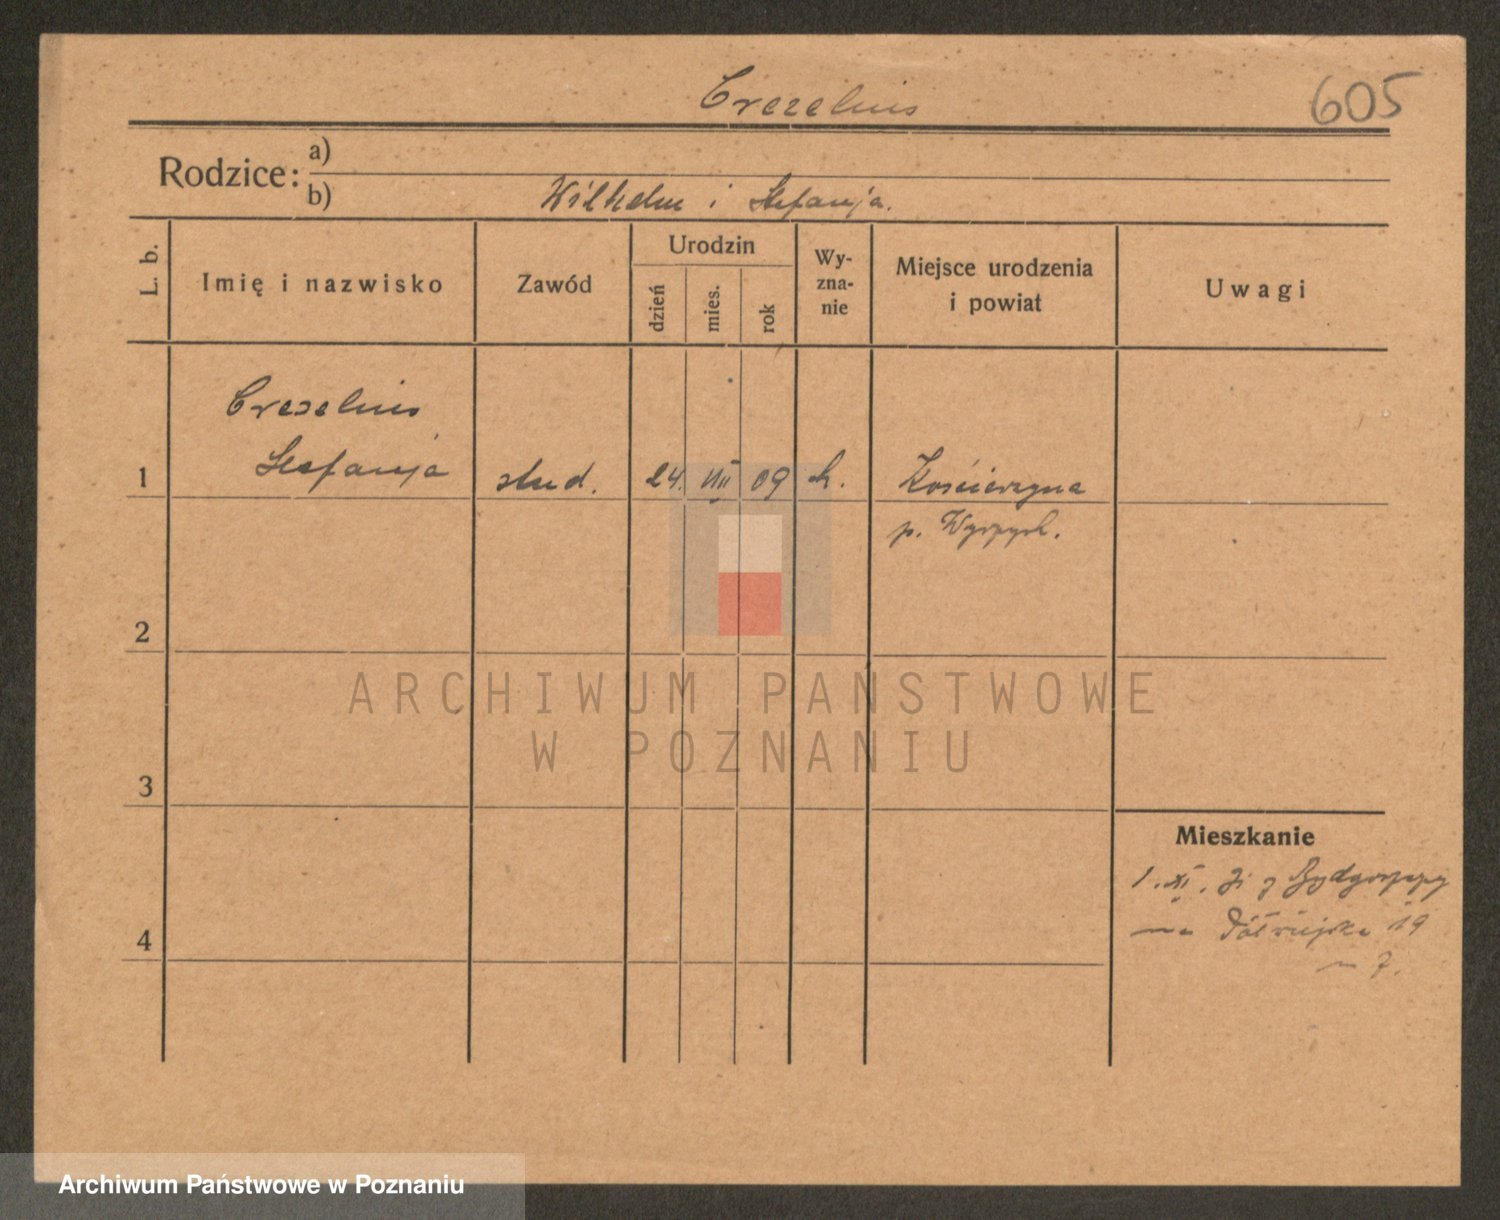 Crezelius
605
Rodzice:
a)
b) Wilhelm i Stefanja.
L. b.
Imię i nazwisko
Zawód
Urodzin
dzień
mies.
rok
Wy-
zna-
nie
Miejsce urodzenia
i powiat
Uwagi
Crezelius
1 Stefanja stud. 24. VII 09 k. Kościerzyna
p.
2
ARCHIWUM PAŃSTWOWE
W POZNANIU
3
Mieszkanie
1. XI. 31 z Bydgoszczy
na 19
4
m 7.
Archiwum Państwowe w Poznaniu